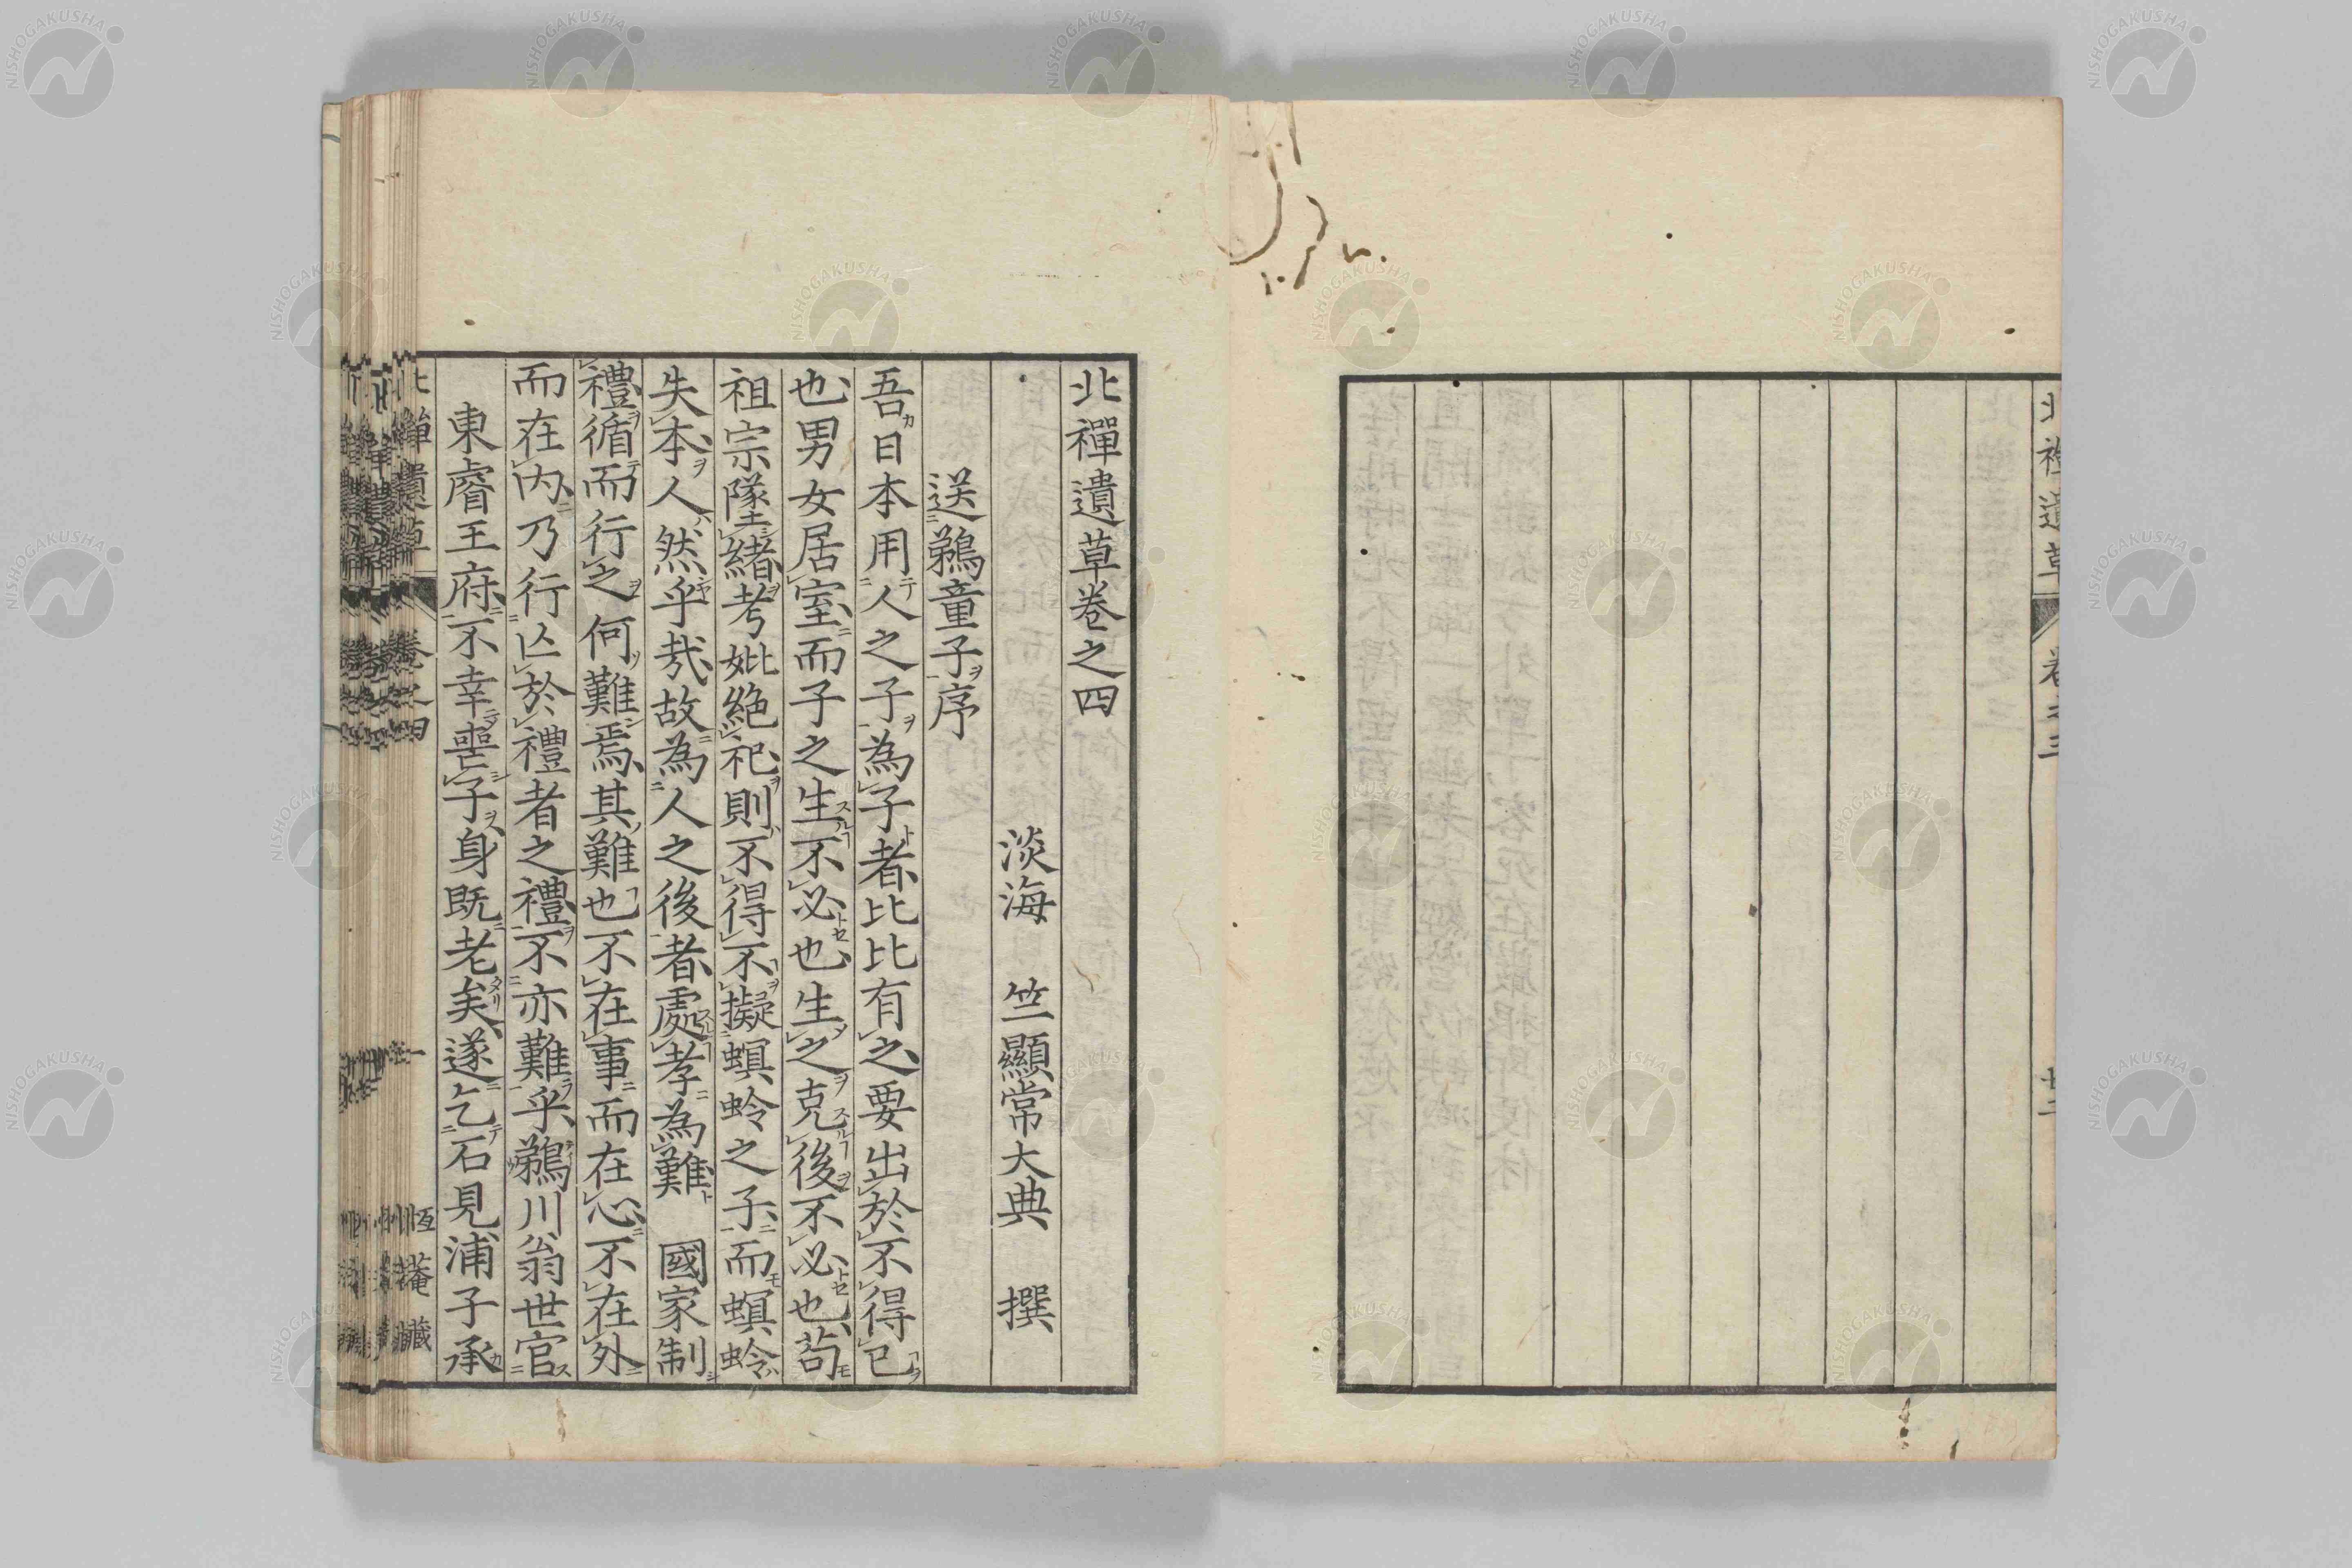 北禪遺草
卷之三
廿二
北禪遺草卷之四
淡海 竺顯常大典 撰
送鵜童子序
吾日本用人之子為子者比比有之要出於不得已
也男女居室而子之生不必也生之克後不必也苟
祖宗墜緒考妣絶祀則不得不擬螟蛉之子而螟蛉
失本人然乎哉故為人之後者處孝為難 國家制
禮循而行之何難焉其難也不在事而在心不在外
而在内乃行亡於禮者之禮不亦難乎鵜川翁世官
東睿王府不幸喪子身既老矣遂乞石見浦子承
北禪遺草
卷之四
一
恆菴藏
NISHOGAKUSHA